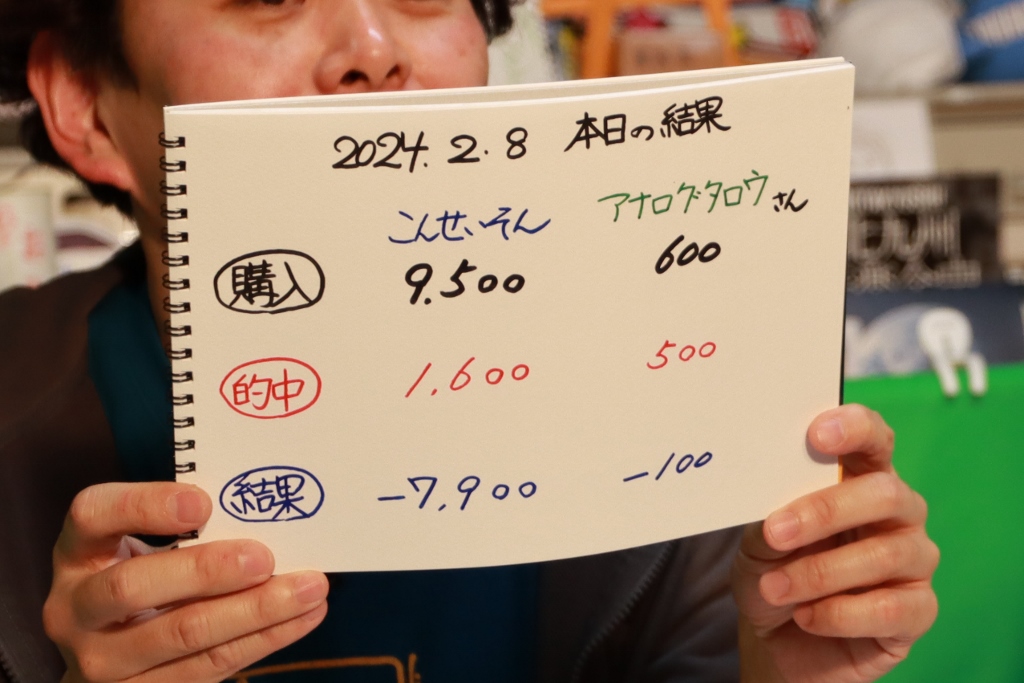 2024. 2. 8 本日の結果
こんせいそん アナログタロウさん
購入 9.500 600
的中 1.600 500
結果 -7.900 -100
九州